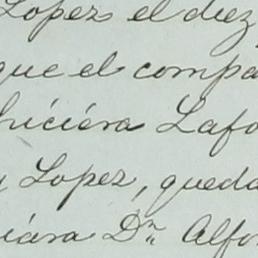 Lopez el diez
que el compa
hiciéra Lafo
y Lopez, queda
iára Dn. Alfon